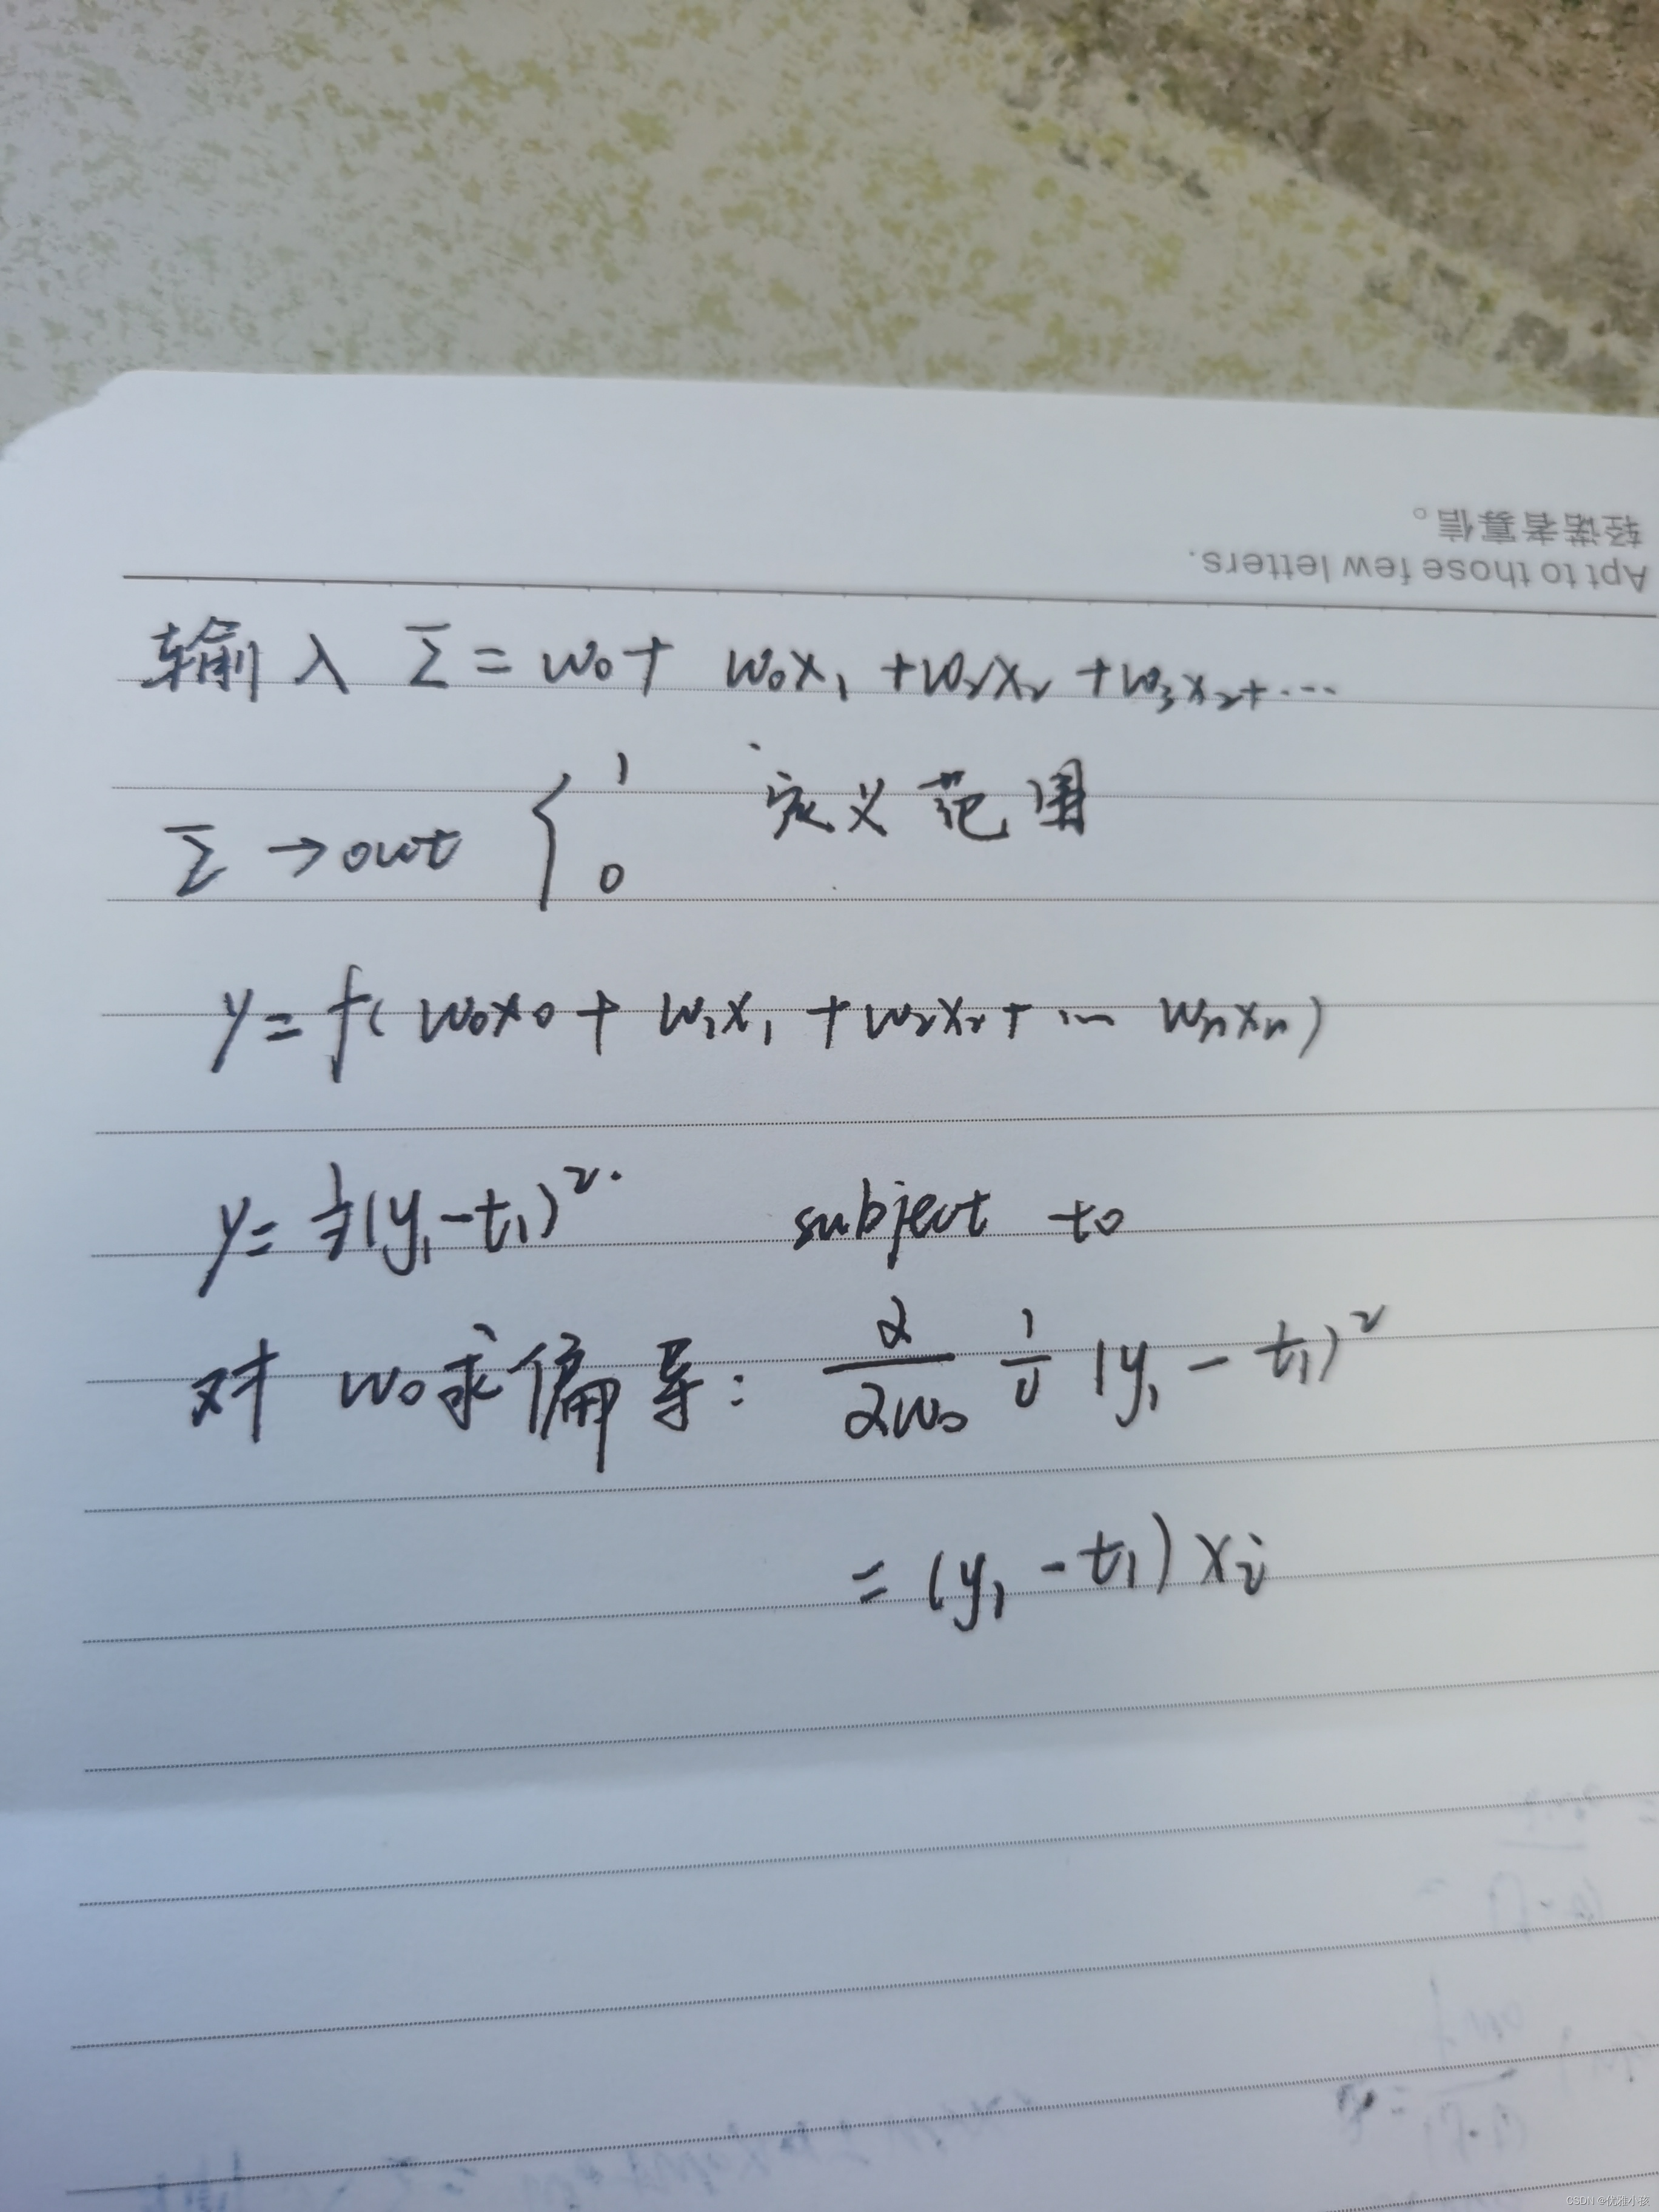 轻诺者寡信。
Apt to those few letters.
输入 Σ = w₀ + w₀x₁ + w₂x₂ + w₃x₂ + ...
Σ → out { 1 0 定义范围
y = f( w₀x₀ + w₁x₁ + w₂x₂ + ... wₙxₙ )
y = ½(y₁ - t₁)². subject to
对 w₀ 求偏导: ∂/∂w₀ ½ (y₁ - t₁)²
= (y₁ - t₁) xᵢ
CSDN @优雅小孩